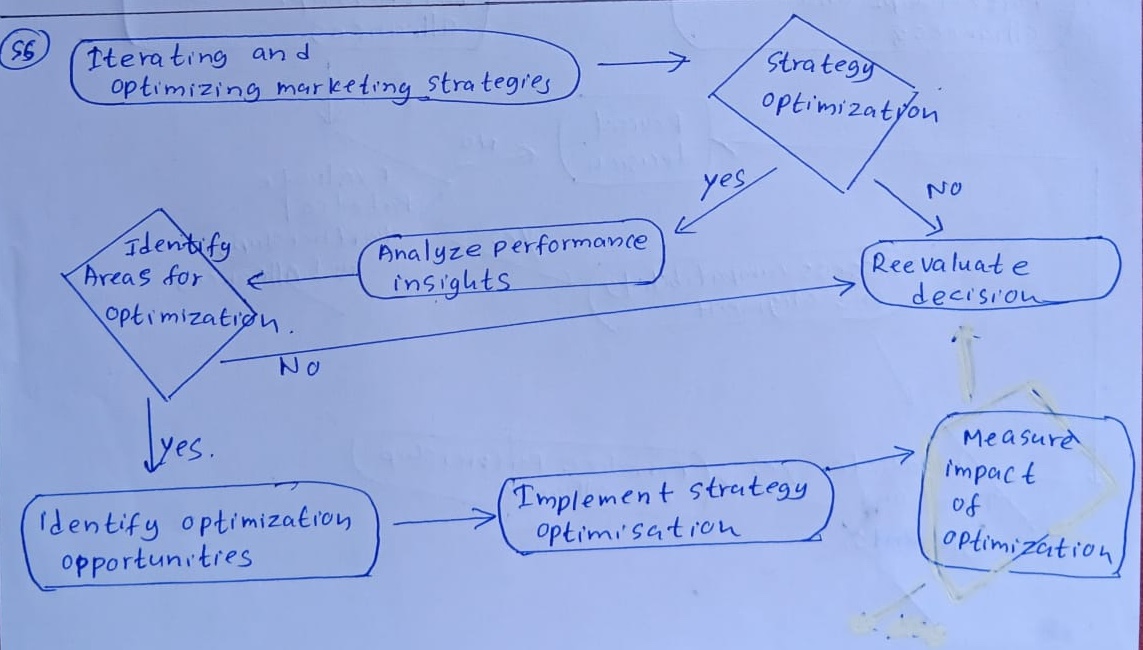 56
Iterating and
optimizing marketing strategies
Strategy
optimization
yes
NO
Identify
Areas for
optimization.
Analyze performance
insights
Reevaluate
decision
No
yes.
Identify optimization
opportunities
Implement strategy
optimisation
Measure
impact
of
optimization